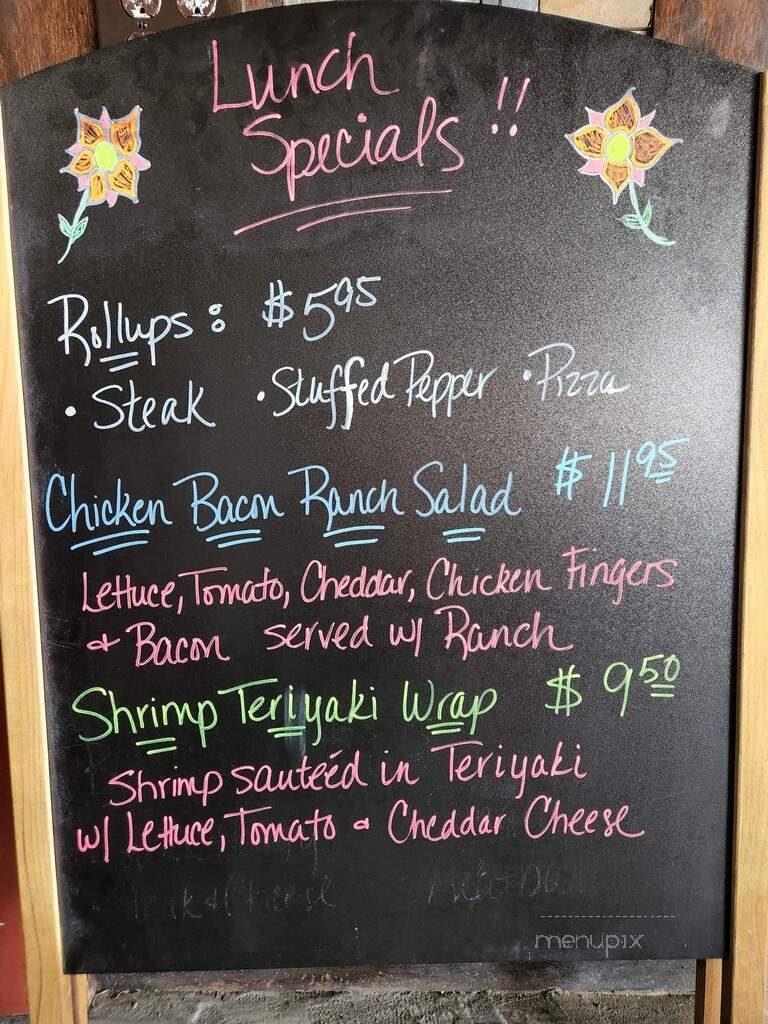 Lunch
Specials !!
Rollups: $5.95
• Steak • Stuffed Pepper • Pizza
Chicken Bacon Ranch Salad $11.95
Lettuce, Tomato, Cheddar, Chicken Fingers
& Bacon served w/ Ranch
Shrimp Teriyaki Wrap $9.50
Shrimp sauteéd in Teriyaki
w/ Lettuce, Tomato & Cheddar Cheese
& Cheese
menupix